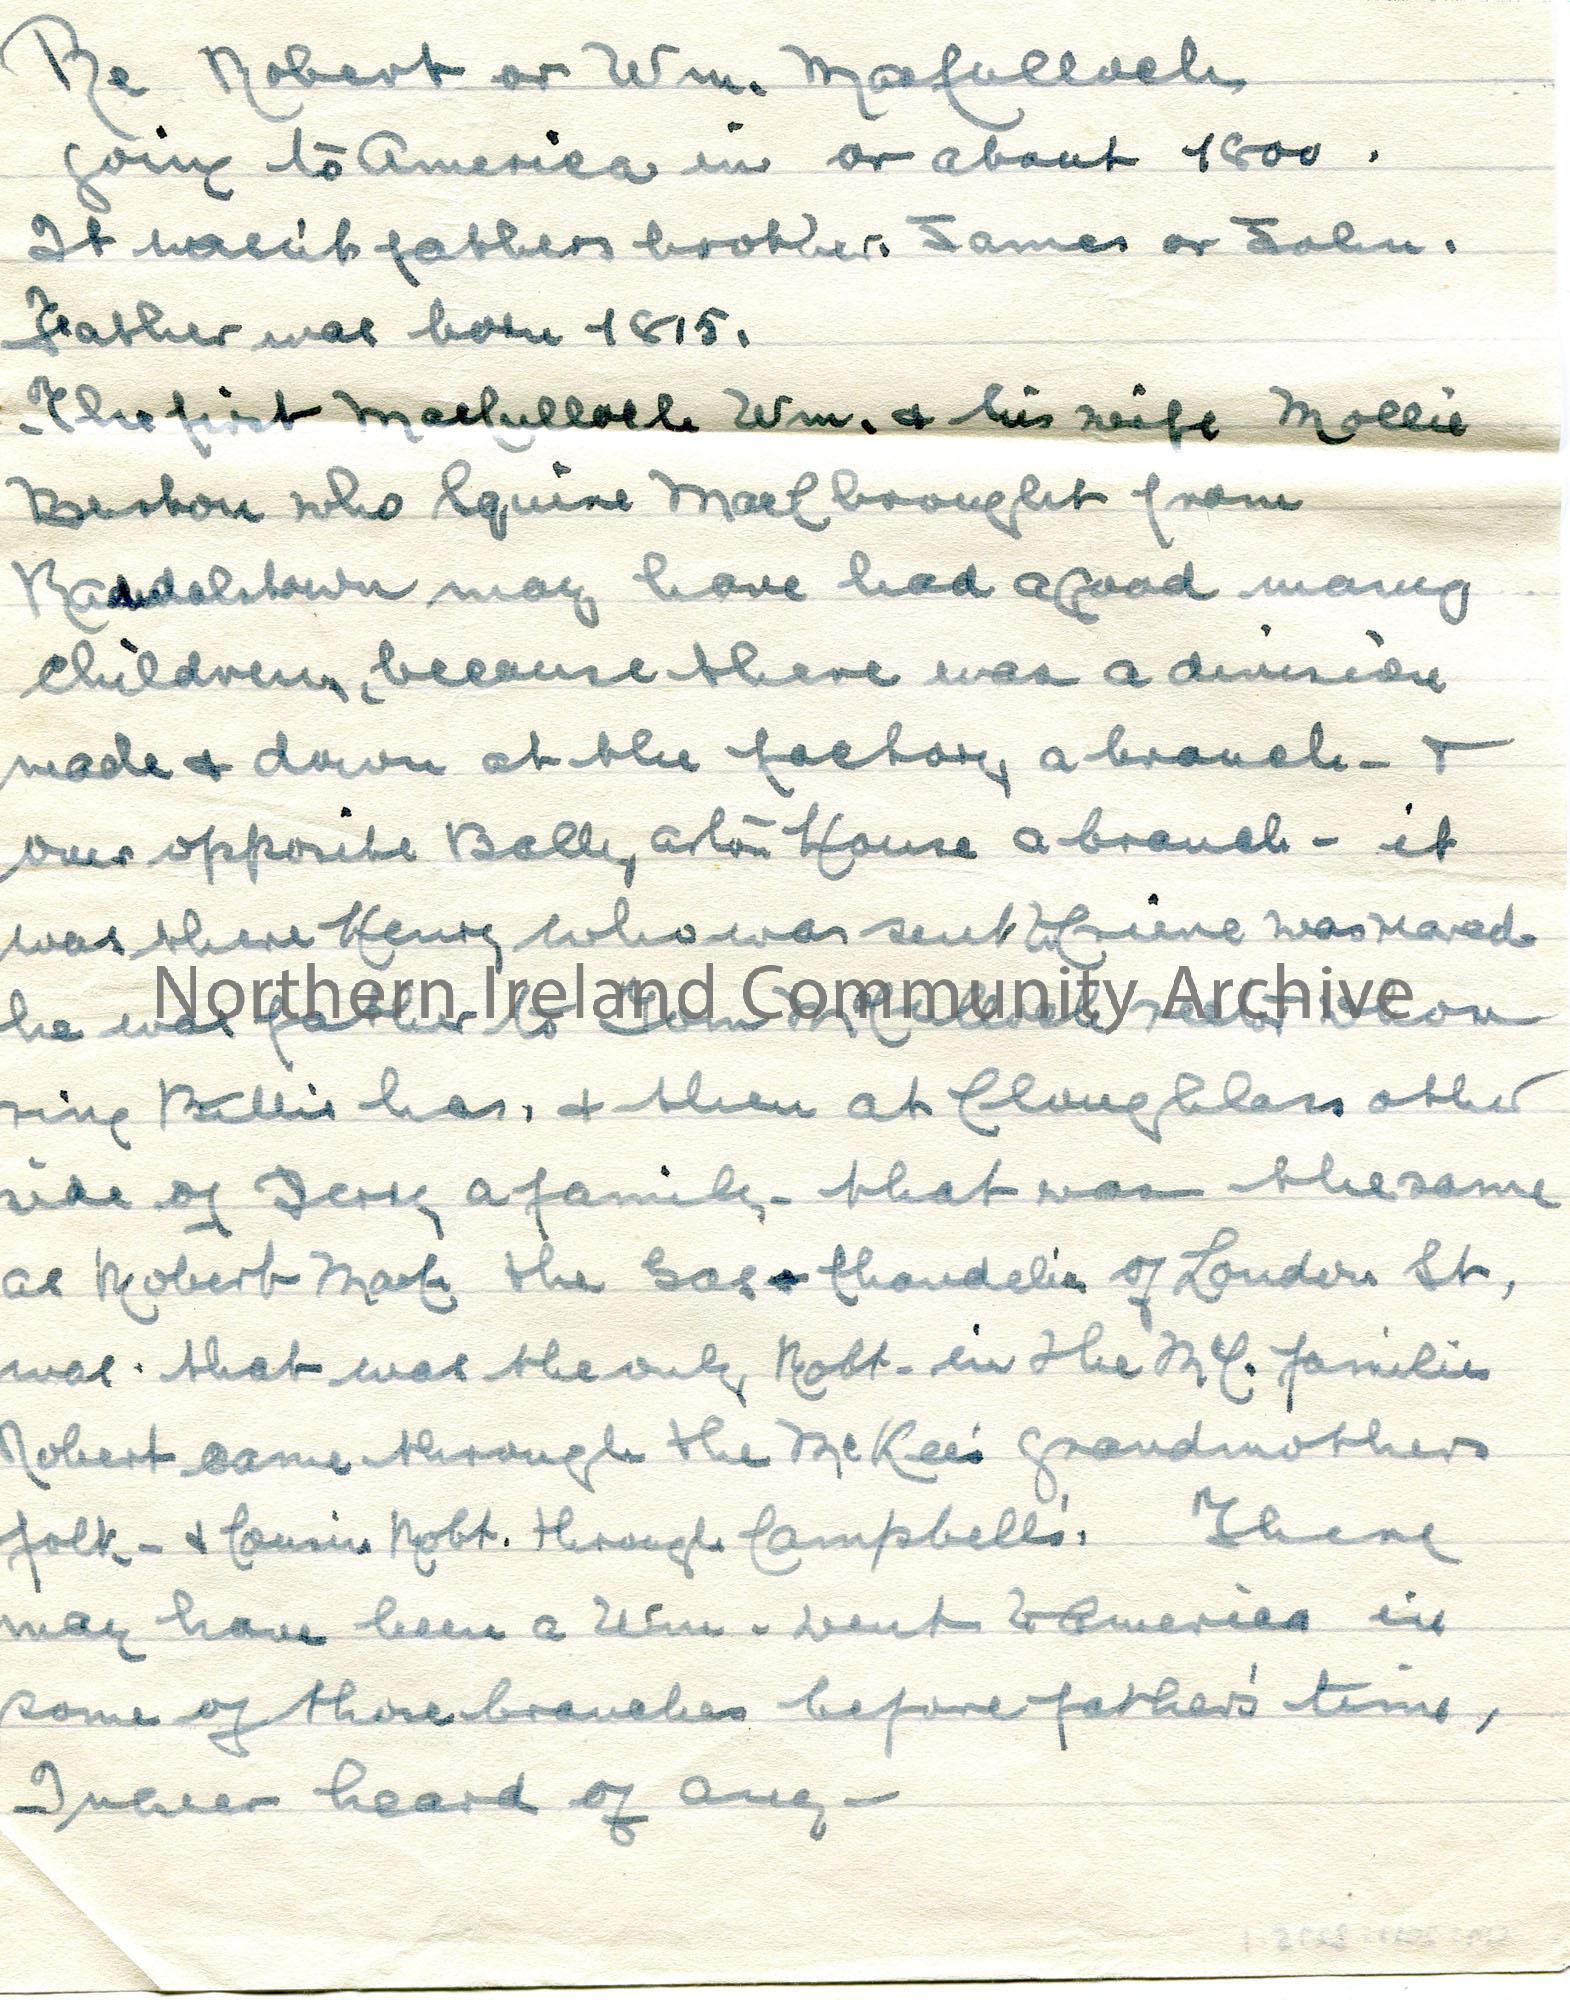 Re Robert or Wm. MacCulloch
going to America in or about 1800.
It wasn't fathers brother. James or John.
Father was born 1815.
The first MacCulloch Wm. & his wife Mollie
who Squire MacC brought from
Randalstown may have had a good many
children, because there was a division
made & down at the factory a branch - &
over opposite Ballyarton House a branch - it
was there Henry who was sent was reared
he was father to Tom McCulloch whose
ring Billie has. & then at Cloughglass other
side of Derry a family - that was the same
as Robert MacC the Gas & Chandelier of London St,
was. that was the only Robt. in the McC. families
Robert came through the McKee's grandmothers
folk - & Cousin Robt. through Campbell's. There
may have been a Wm. went to America in
some of those branches before father's time,
I never heard of any -
Northern Ireland Community Archive